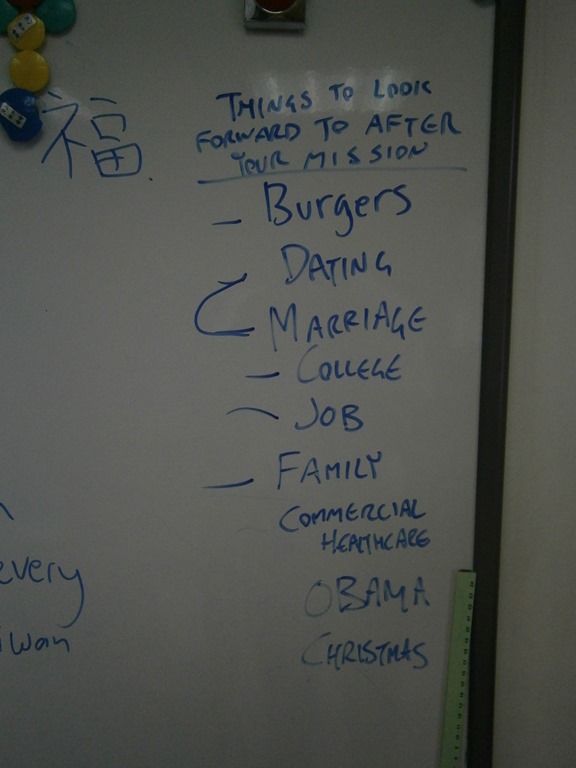 福
THINGS TO LOOK
FORWARD TO AFTER
YOUR MISSION
- Burgers
DATING
MARRIAGE
- COLLEGE
- JOB
- FAMILY
COMMERCIAL
HEALTHCARE
OBAMA
CHRISTMAS
every
iwan